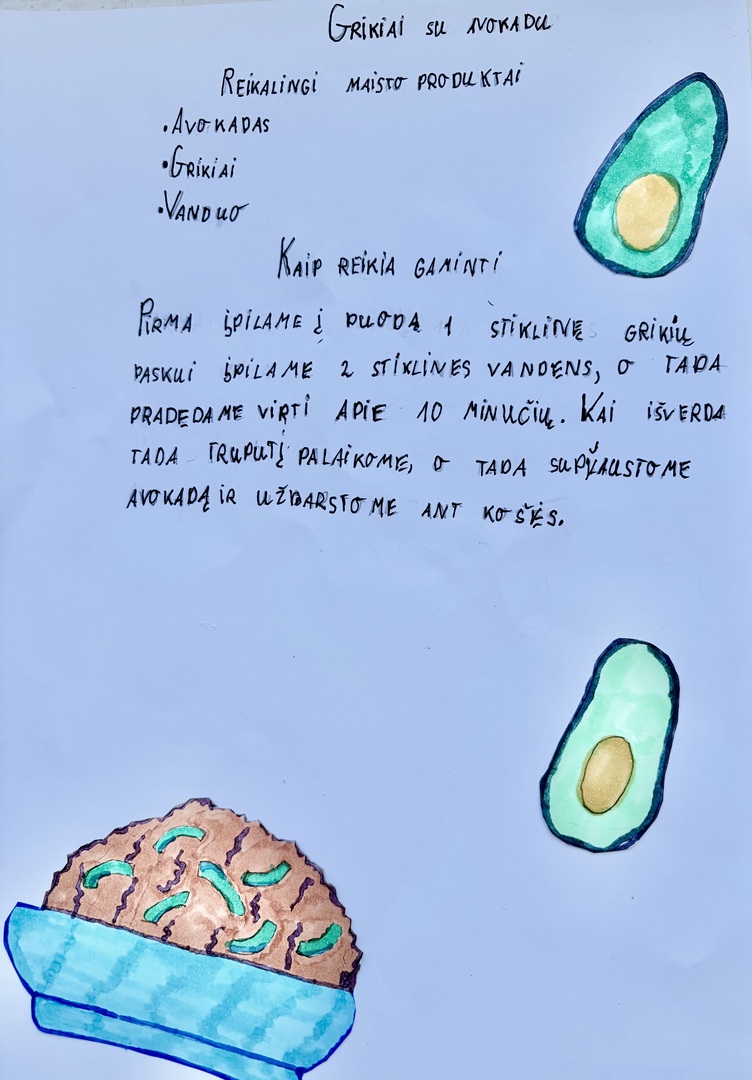 Grikiai su avokadu
Reikalingi maisto produktai
•Avokadas
•Grikiai
•Vanduo
Kaip reikia gaminti
Pirma įpilame į puodą 1 stiklinę grikių
paskui įpilame 2 stiklines vandens, o tada
pradedame virti apie 10 minučių. Kai išverda
tada truputį palaikome, o tada supjaustome
avokadą ir užbarstome ant košės.